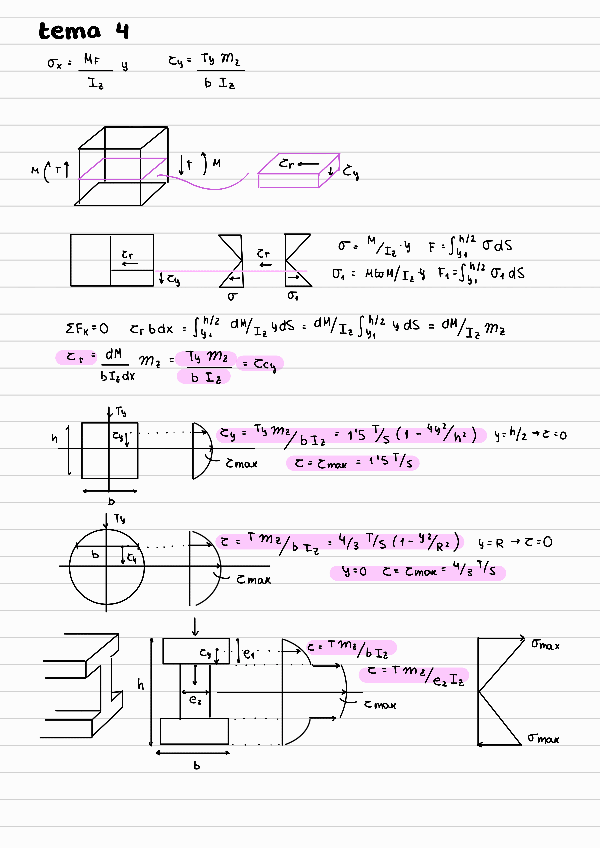 tema 4
σx = MF / Iz y   τy = Ty mz / b Iz
M T T M τr τy
τr τy σ τr σ1
σ = M/Iz · y   F = ∫y1^h/2 σ dS
F1 = ∫y1^h/2 σ1 dS
ΣFx = 0   τr b dx = ∫y1^h/2 dM/Iz y dS = dM/Iz ∫y1^h/2 y dS = dM/Iz mz
τr = dM / b Iz dx mz = Ty mz / b Iz = τy
Ty
h τy τy = Ty mz / b Iz = 1'5 T/S (1 - 4y²/h²)   y = h/2 → τ = 0
τmax τ = τmax = 1'5 T/S
b
Ty
b τy τ = T mz / b Iz = 4/3 T/S (1 - y²/R²)   y = R → τ = 0
τmax y = 0   τ = τmax = 4/3 T/S
h τy e1 τ = T mz / b Iz σmax
τ = T mz / e2 Iz
e2 τmax
σmax
b